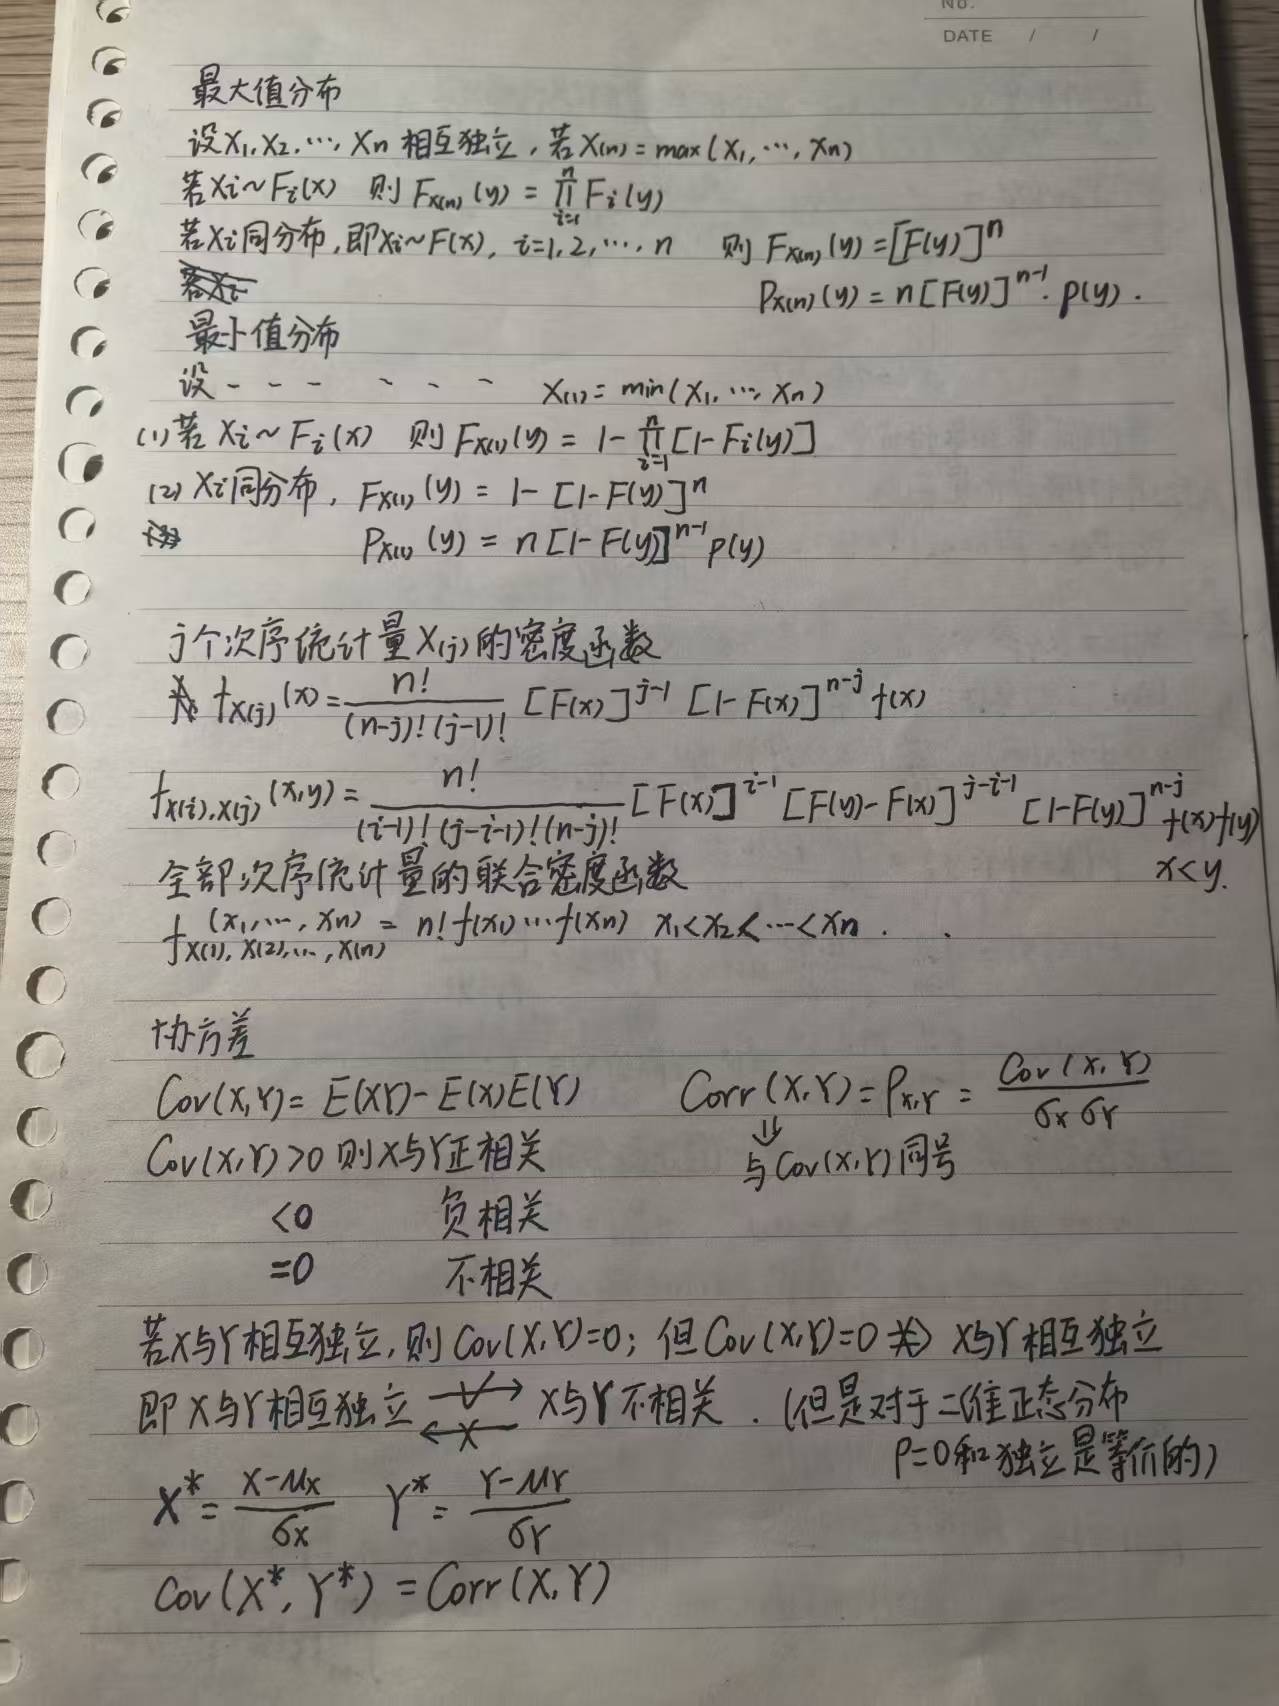 No.
DATE / /
最大值分布
设X₁,X₂,…,Xn 相互独立,若X(n)=max(X₁,…,Xn)
若Xi~Fi(x) 则 F_{X(n)}(y) = ∏_{i=1}^{n} Fi(y)
若Xi同分布,即Xi~F(x), i=1,2,…,n 则 F_{X(n)}(y)=[F(y)]^n
P_{X(n)}(y)=n[F(y)]^{n-1}·p(y).
最小值分布
设 - - - - - - X(1)=min(X₁,…,Xn)
(1)若 Xi~Fi(x) 则 F_{X(1)}(y)= 1-∏_{i=1}^{n}[1-Fi(y)]
(2) Xi同分布, F_{X(1)}(y)= 1-[1-F(y)]^n
P_{X(1)}(y)= n[1-F(y)]^{n-1}p(y)
j个次序统计量X(j)的密度函数
f_{X(j)}(x)= n!/((n-j)!(j-1)!) [F(x)]^{j-1} [1-F(x)]^{n-j} f(x)
f_{X(i),X(j)}(x,y)= n!/((i-1)!(j-i-1)!(n-j)!) [F(x)]^{i-1} [F(y)-F(x)]^{j-i-1} [1-F(y)]^{n-j} f(x)f(y)
x<y.
全部次序统计量的联合密度函数
f_{X(1),X(2),…,X(n)}(x₁,…,xn) = n!f(x₁)…f(xn) x₁<x₂<…<xn .
协方差
Cov(X,Y)= E(XY)-E(X)E(Y) Corr(X,Y)=ρ_{X,Y}= Cov(X,Y)/(σx σY)
Cov(X,Y)>0 则X与Y正相关 ⇓ 与Cov(X,Y)同号
<0 负相关
=0 不相关
若X与Y相互独立,则Cov(X,Y)=0; 但Cov(X,Y)=0 ⇏ X与Y相互独立
即X与Y相互独立 —√→ ←×— X与Y不相关.(但是对于二维正态分布
ρ=0和独立是等价的)
X*= (X-μx)/σx Y*= (Y-μY)/σY
Cov(X*,Y*)=Corr(X,Y)